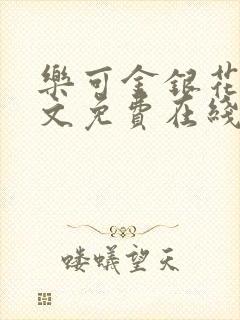 樂可金銀花
文免費在綫
喽蟻望天